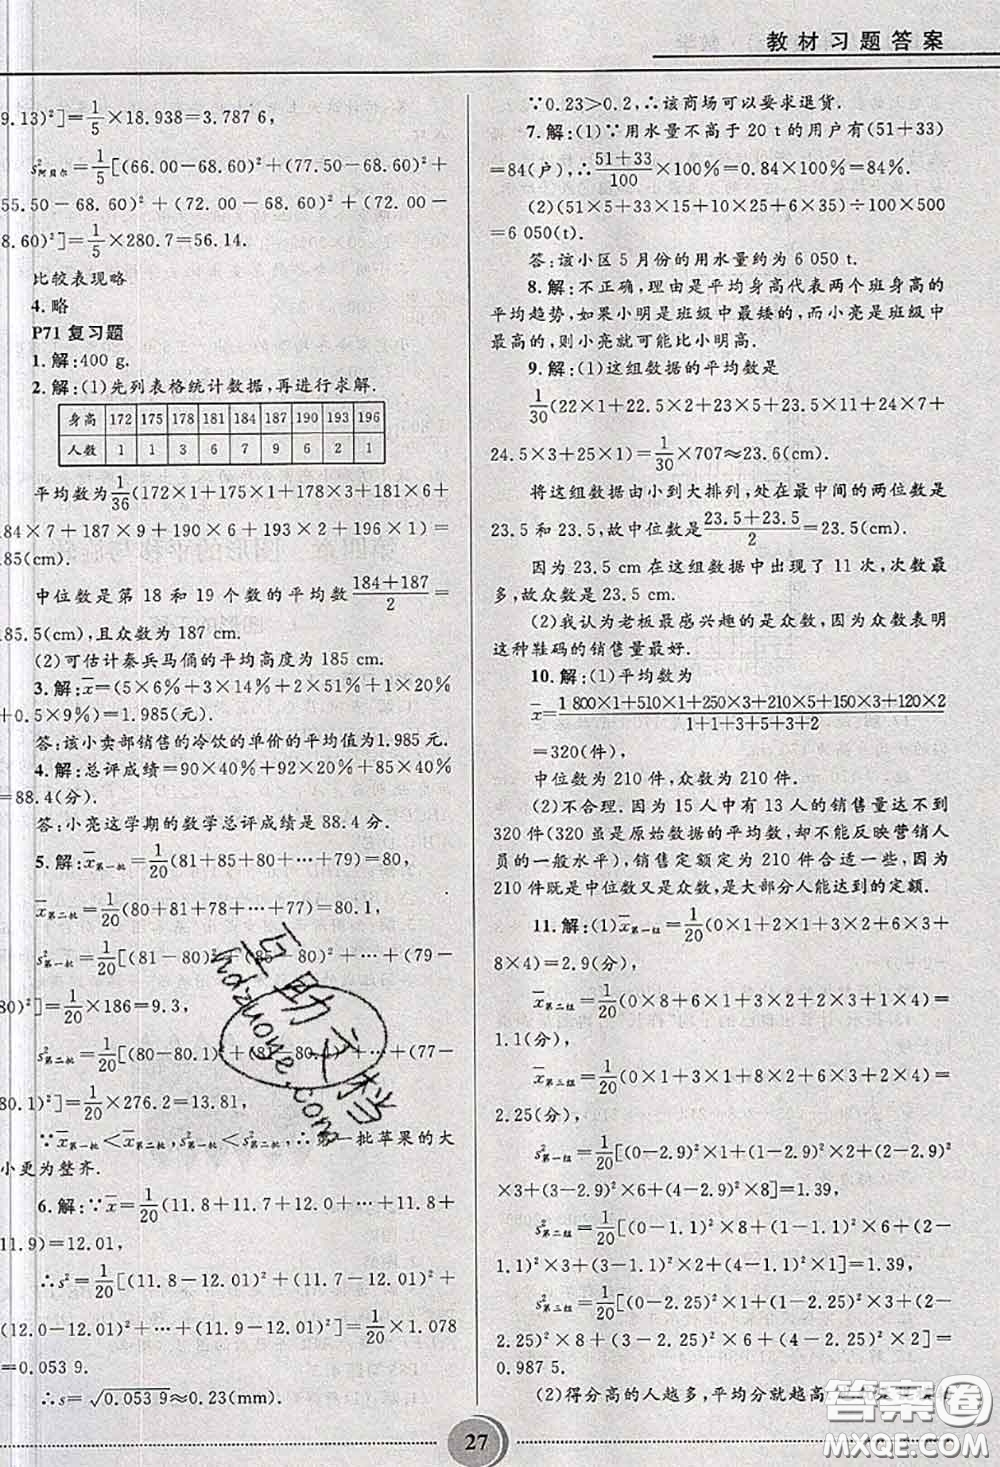 教材习题答案
9.13)²]=1/5×18.938=3.787 6,
s²阿贝尔=1/5[(66.00-68.60)²+(77.50-68.60)²+
55.50-68.60)²+(72.00-68.60)²+(72.00-
8.60)²]=1/5×280.7=56.14.
比较表现略
4.略
P71 复习题
1.解:400 g.
2.解:(1)先列表格统计数据,再进行求解.
身高 172 175 178 181 184 187 190 193 196
人数 1 1 3 6 7 9 6 2 1
平均数为1/36(172×1+175×1+178×3+181×6+
184×7+187×9+190×6+193×2+196×1)=
185(cm)
中位数是第 18 和 19 个数的平均数(184+187)/2=
185.5(cm),且众数为 187 cm.
(2)可估计秦兵马俑的平均高度为 185 cm.
3.解:x̄=(5×6%+3×14%+2×50%+1×20%
+0.5×9%)=1.985(元).
答:该小卖部销售的冷饮的单价的平均值为1.985 元.
4.解:总评成绩=90×40%+92×20%+85×40%
=88.4(分).
答:小亮这学期的数学总评成绩是 88.4 分.
5.解:x̄第一批=1/20(81+85+80+…+79)=80,
x̄第二批=1/20(80+81+78+…+77)=80.1,
s²第一批=1/20[(81-80)²+(85-80)²+…+(79-
80)²]=1/20×186=9.3,
s²第二批=1/20[(80-80.1)²+(81-80.1)²+…+(77-
80.1)²]=1/20×276.2=13.81,
∵x̄第一批<x̄第二批,s²第一批<s²第二批,∴第一批苹果的大
小更为整齐.
6.解:∵x̄=1/20(11.8+11.7+12.0+…+11.9+
11.9)=12.01,
∴s²=1/20[(11.8-12.01)²+(11.7-12.01)²+
(12.0-12.01)²+…+(11.9-12.01)²]=1/20×1.078
=0.053 9.
∴s=√0.053 9≈0.23(mm).
∵0.23>0.2,∴该商场可以要求退货.
7.解:(1)∵用水量不高于 20 t的用户有(51+33)
=84(户),∴(51+33)/100×100%=0.84×100%=84%.
(2)(51×5+33×15+10×25+6×35)÷100×500
=6 050(t).
答:该小区 5 月份的用水量约为 6 050 t.
8.解:不正确,理由是平均身高代表两个班身高的
平均趋势,如果小明是班级中最矮的,而小亮是班级中
最高的,则小亮就可能比小明高.
9.解:(1)这组数据的平均数是
1/30(22×1+22.5×2+23×5+23.5×11+24×7+
24.5×3+25×1)=1/30×707≈23.6(cm).
将这组数据由小到大排列,处在最中间的两位数是
23.5 和 23.5,故中位数是(23.5+23.5)/2=23.5(cm).
因为 23.5 cm 在这组数据中出现了 11 次,次数最
多,故众数是 23.5 cm.
(2)我认为老板最感兴趣的是众数,因为众数表明
这种鞋码的销售量最好.
10.解:(1)平均数为
x̄=(1 800×1+510×1+250×3+210×5+150×3+120×2)/(1+1+3+5+3+2)
=320(件),
中位数为 210 件,众数为 210 件.
(2)不合理.因为 15 人中有 13 人的销售量达不到
320 件(320 虽是原始数据的平均数,却不能反映营销人
员的一般水平),销售定额定为 210 件合适一些,因为
210 件既是中位数又是众数,是大部分人能达到的定额.
11.解:(1)x̄第一组=1/20(0×1+2×1+3×2+6×3+
8×4)=2.9(分),
x̄第二组=1/20(0×8+6×1+3×2+2×3+1×4)=
1.1(分),
x̄第三组=1/20(0×1+3×1+8×2+6×3+2×4)=
2.25(分),
s²第一组=1/20[(0-2.9)²×1+(1-2.9)²×2+(2-2.9)²
×3+(3-2.9)²×6+(4-2.9)²×8]=1.39,
s²第二组=1/20[(0-1.1)²×8+(1-1.1)²×6+(2-
1.1)²×3+(3-1.1)²×2+(4-1.1)²×1]=1.39,
s²第三组=1/20[(0-2.25)²×1+(1-2.25)²×3+(2-
2.25)²×8+(3-2.25)²×6+(4-2.25)²×2]=
0.987 5.
(2)得分高的人越多,平均分就越高
27
互助文档
hdzuoye.com
答案圈
MXQE.COM